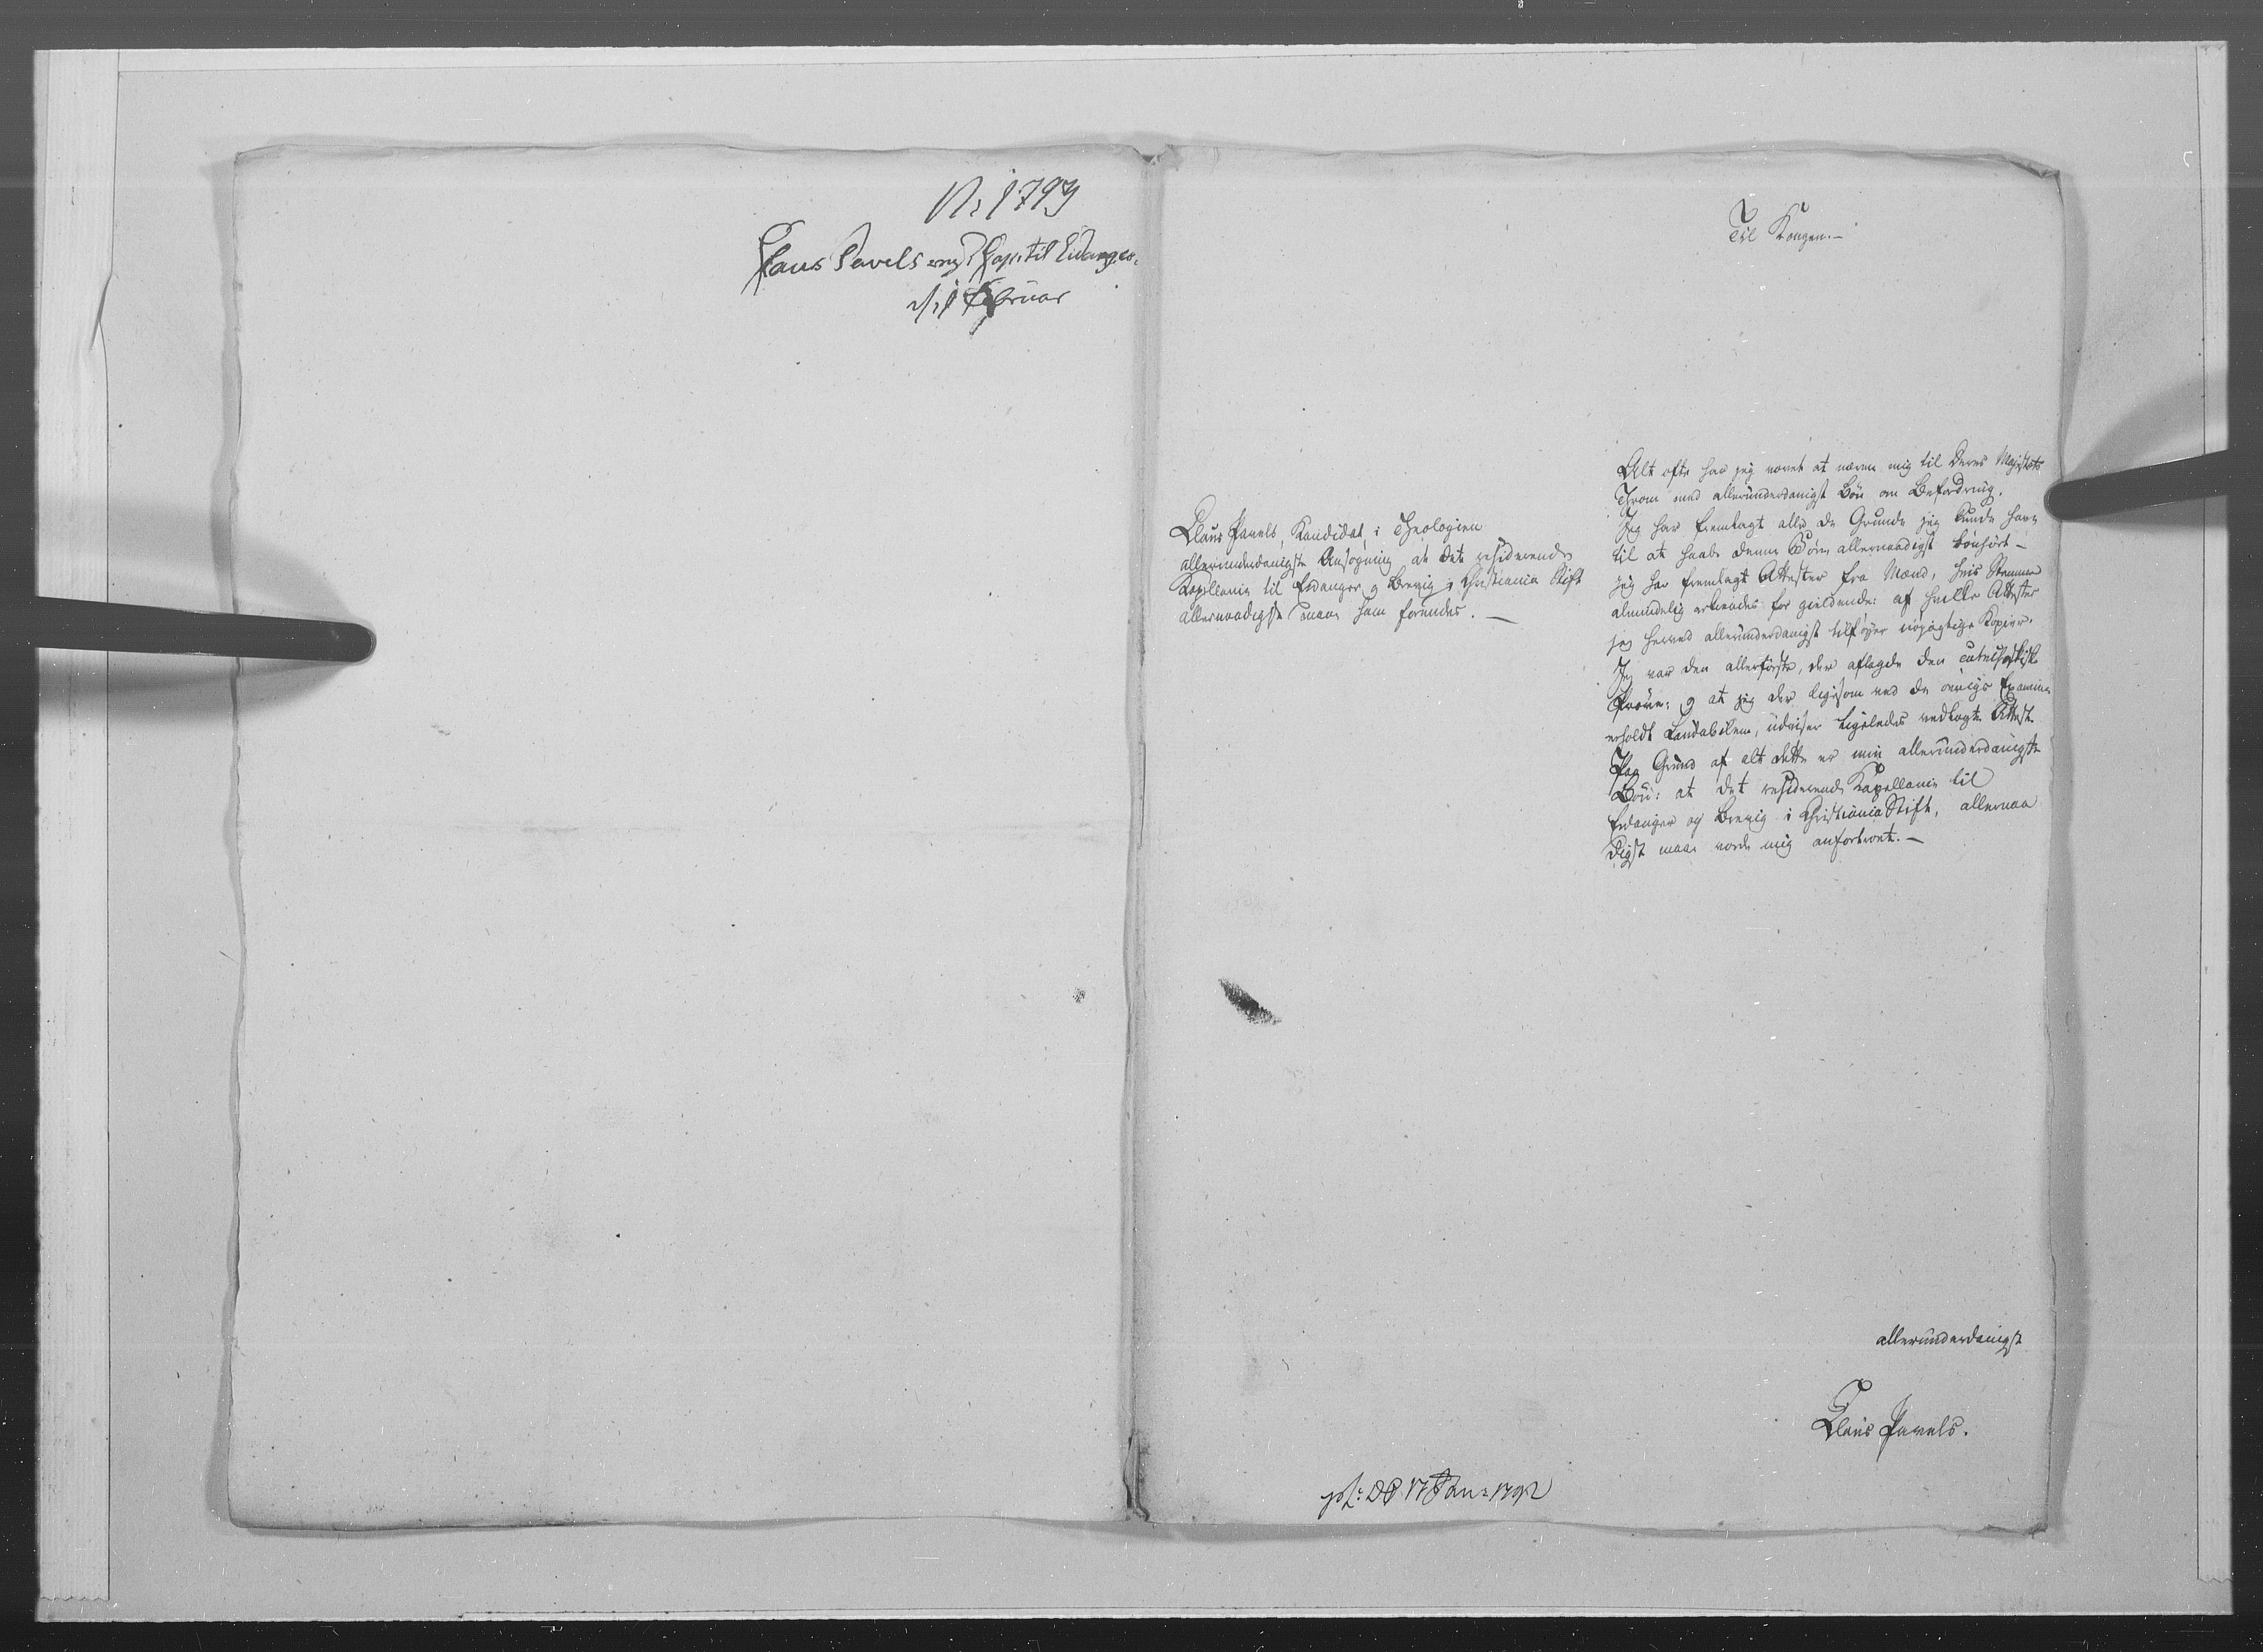 N: 1793
Claus Pavels resid: Cap: til Eidanger.
d: 1 Februar
Til Kongen.—
Claus Pavels, Kandidat i Theologien
allerunderdanigste Ansögning at det residerende
Kapellanie til Eidanger og Brevig i Christiania Stift
allernaadigst maae ham forundes.—
Alt ofte har jeg vovet at nærme mig til Deres Majestæts
Throne med allerunderdanigst Bön om Befordring.
Jeg har fremlagt alle de Grunde jeg kunde have
til at haabe denne Bön allernaadigst bönhört —
jeg har fremlagt Attester fra Mænd, hvis Stemme
almindelig erkiendes for gieldende: af hvilke Attester
jeg herved allerunderdanigst tilföyer nöyagtige Kopier.
Jeg var den allerförste, der aflagde den catechetiske
Pröve: og at jeg der ligesom ved de övrige Examina
erholdt Laudabilem, udviser ligeledes vedlagte Attest.
Paa Grund af alt dette er min allerunderdanigste
Bön: at det residerende Kapellanie til
Eidanger og Brevig i Christiania Stift, allernaa
digst maae vorde mig anfortroet.—
allerunderdanigst
Claus Pavels.
17 Jan: 1792